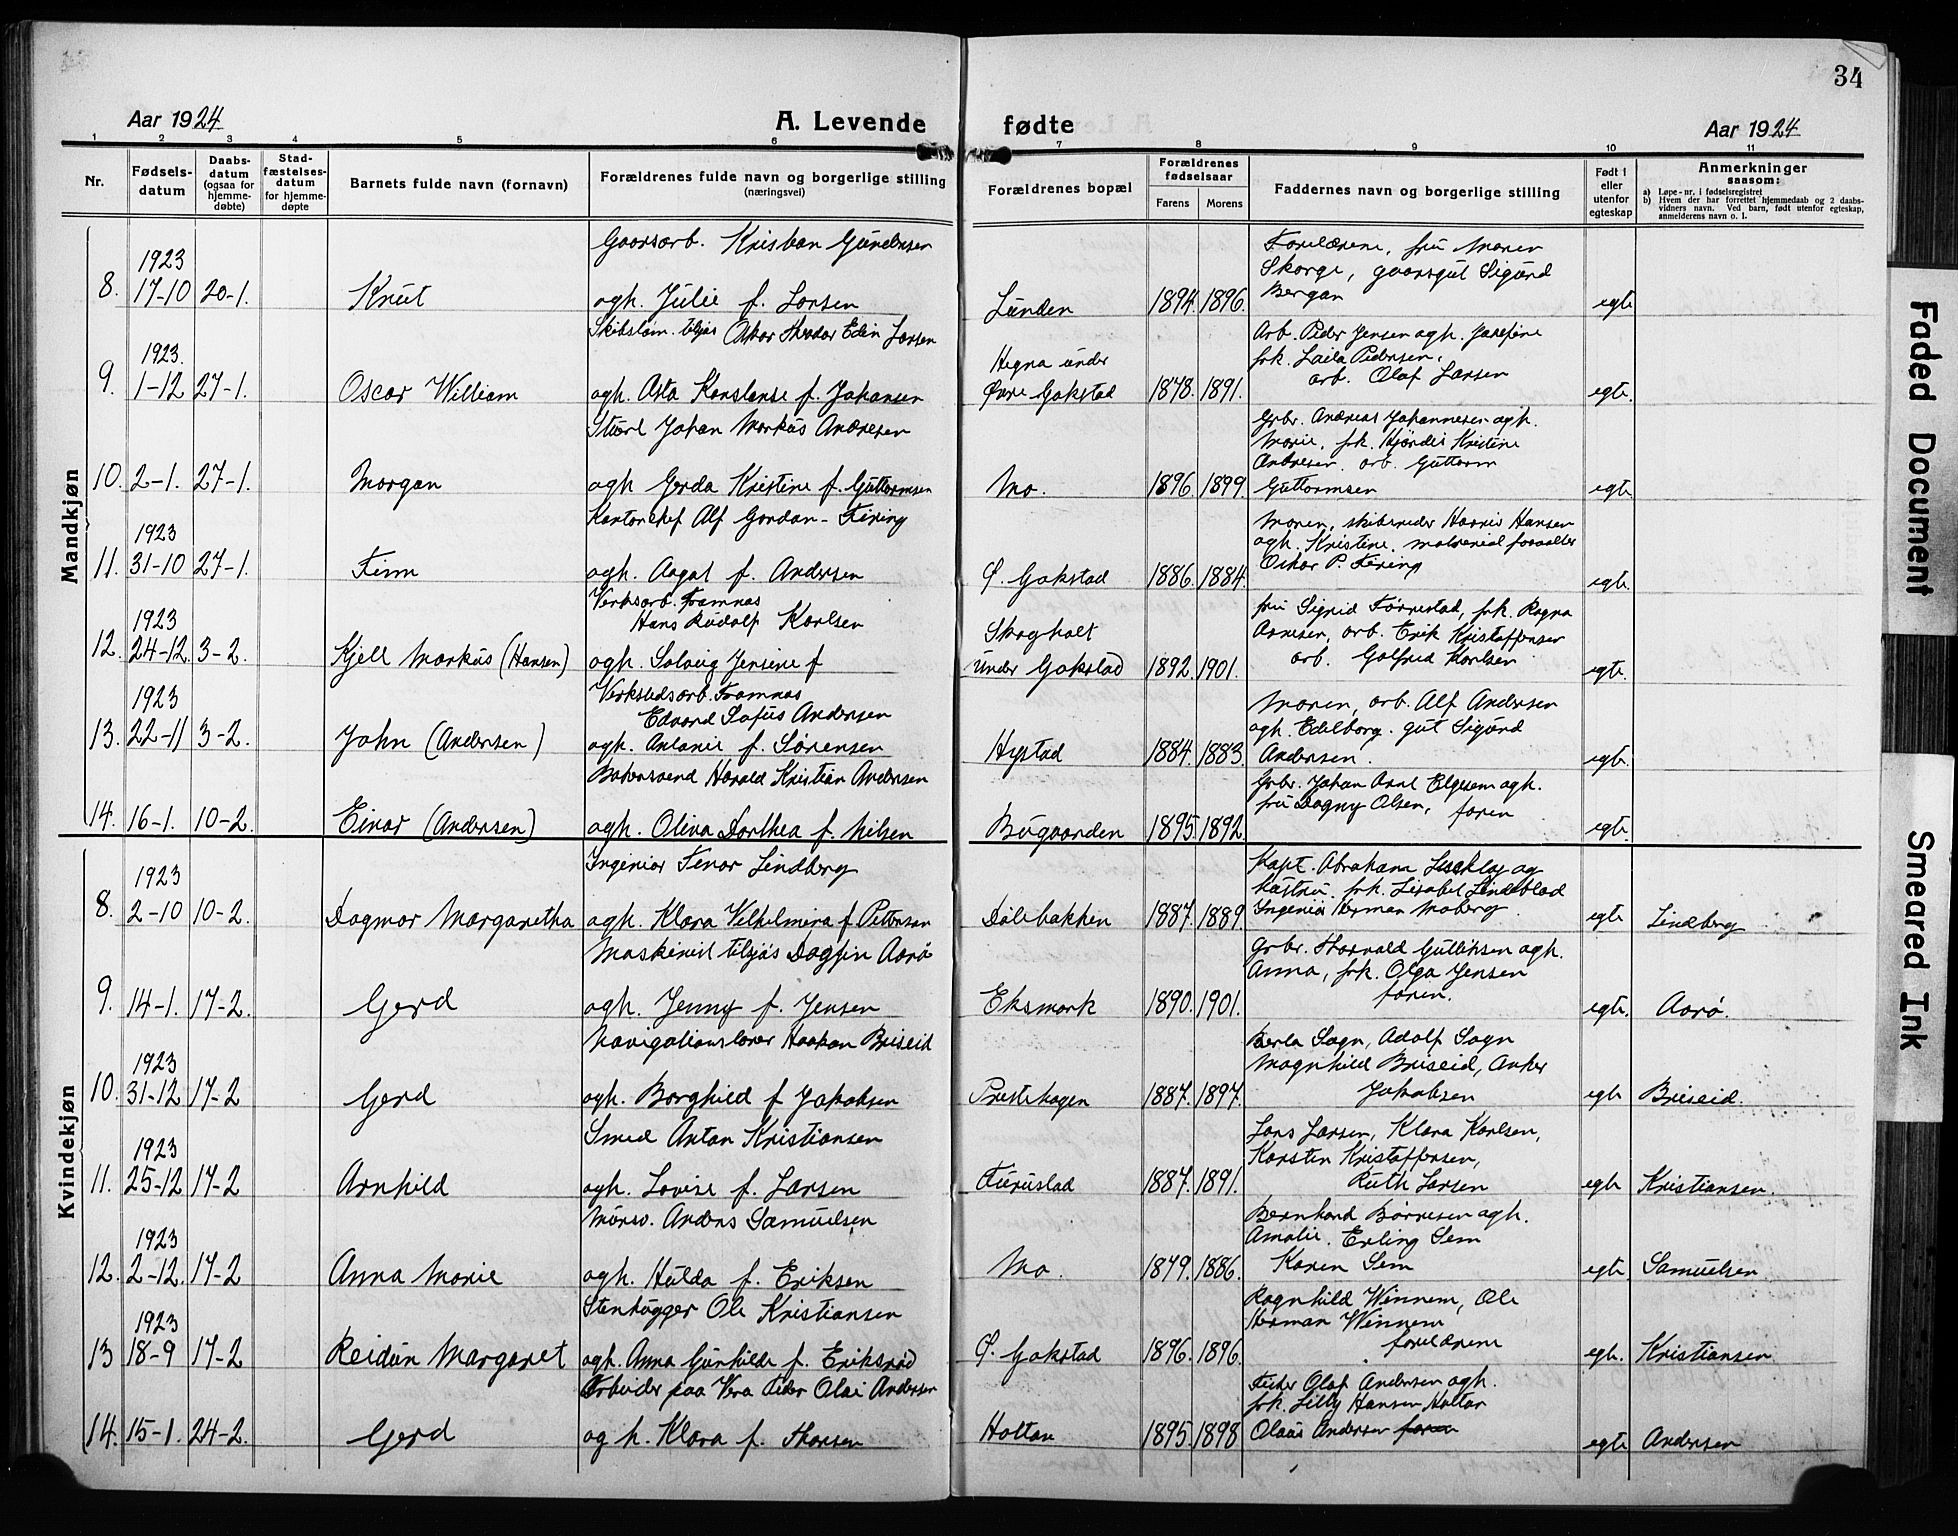 34
Aar 1924
A. Levende
fødte
Aar 1924
1 2 3 4 5 6 7 8 9 10 11
Nr.
Fødsels-
datum
Daabs-
datum
(ogsaa for
hjemme-
døbte)
Stad-
fæstelses-
datum
for hjemme-
døpte
Barnets fulde navn (fornavn)
Forældrenes fulde navn og borgerlige stilling
(næringsvei)
Forældrenes bopæl
Forældrenes
fødselsaar
Farens
Morens
Faddernes navn og borgerlige stilling
Født i
eller
utenfor
egteskap
Anmerkninger
saasom:
a) Løpe-nr. i fødselsregistret
b) Hvem der har forrettet hjemmedaab og 2 daabs-
vidners navn. Ved barn, født utenfor egteskap,
anmelderens navn o. l.
Mandkjøn
Gaarsarb. Kristian Gundersen
1923
8. 17-10 20-1. Knut
ogh. Julie f. Larsen
Lunden 1894. 1896.
Forældrene, fru Maren
Skorge, gaardsgut Sigurd
Bergan
egte
Oskar Teodor Edin Larsen
1923.
9. 1-12 27-1. Oscar William
ogh. Asta Konstanse f. Johansen
Hegna under
Øvre Gokstad 1878. 1891.
Arb. Peder Jensen ogh. Josefine
frk. Laila Pedersen.
arb. Olaf Larsen
egte.
Stuert Johan Markus Andresen
10. 2-1. 27-1. Morgan
ogh Gerda Kristine f. Guttormsen
Mo. 1896. 1899.
Gbr. Andreas Johannesen ogh.
Marie, frk. Hjørdis Kristine
Andresen. arb. Guttorm
Guttormsen
egte
Kontorchef Alf Gordan-Firing
1923
11. 31-10 27-1. Finn
ogh. Aagot f. Andersen
Ø. Gokstad 1886. 1884.
Moren, skibsreder Harris Hansen
ogh. Kristine. material forvalter
Oskar P. Firing
egte.
Verksarb. Framnæs
Hans Rudolf Karlsen
1923
12. 24-12. 3-2. Kjell Markus (Hansen)
ogh. Solveig Jensine f
Skogholt
under Gokstad 1892. 1901.
fru Sigrid Tørrestad, frk. Ragna
Arnesen, arb. Erik Kristoffersen
arb. Golfred Karlsen
egte.
Verkstedsarb. Framnæs
Edvard Sofus Andersen
1923
13. 22-11 3-2. John (Andersen)
ogh. Antonie f. Sørensen
Hystad 1884. 1883.
Moren, arb. Alf Andersen
ogh. Edelborg. gut Sigurd
Andersen.
egte.
Bakersvend Harald Kristian Andersen
14. 16-1. 10-2. Einar (Andersen)
ogh. Oliva Dorthea f. Nilsen
Bugaarden 1895. 1892.
Gbr. Johan Arnt Elgesem ogh.
fru Dagny Olsen, faren
egte.
Kvindekjøn
Ingeniør Lindberg
1923
8. 2-10 10-2. Dagmar Margaretha
ogh. Klara Velhelmina f. Pettersen
Dølebakken 1887. 1889.
Kapt. Abraham og
hustru, frk. Lisabet Lindeblad
Ingeniør Herman Moberg.
egte Lindberg
Maskinist tilsjøs Dagfin Aarø
9. 14-1. 17-2. Gerd
ogh. Jenny f. Jensen
Eksmark 1890. 1901.
Gbr. Thorvald Gulliksen ogh.
Anna, frk. Olga Jensen
faren.
egte. Aarø.
Navigationslærer Haakon Briseid
1923
10. 31-12 17-2 Gerd
ogh. Borghild f Jakobsen
Prestehagen 1887. 1897.
Berta Sagn, Adolf Sagn
Magnhild Briseid, Anker
Jakobsen
egte Briseid.
Smed Anton Kristiansen
1923
11. 25-12 17-2 Arnhild
ogh. Lovise f. Larsen
Furustad 1887. 1891.
Lars Larsen, Klara Karlsen,
Karsten Kristoffersen,
Ruth Larsen
egte Kristiansen.
Mursv. Anders Samuelsen
1923
12. 2-12. 17-2 Anna Marie
ogh. Hulda f. Eriksen
Mo. 1879. 1886.
Bernhard Børresen ogh.
Amalie. Erling Sem
Karen Sem
egte Samuelsen
Stenhugger Ole Kristiansen
1923
13 18-9 17-2 Reidun Margaret
ogh. Anna Gunhilde f. Eriksrød
Ø. Gokstad 1896. 1896.
Ragnhild Winnem, Ole
Herman Winnem
forældrene
egte. Kristiansen
Arbeider paa Vera Peder Olai Andersen
14. 15-1. 24-2. Gerd
og h. Klara f. Thorsen
Holtan 1895. 1898
Fisker Olaf Andersen ogh.
frk. Lilly Hansen Holtan
Olaus Andersen faren
egte Andersen
Faded Document
Smeared Ink